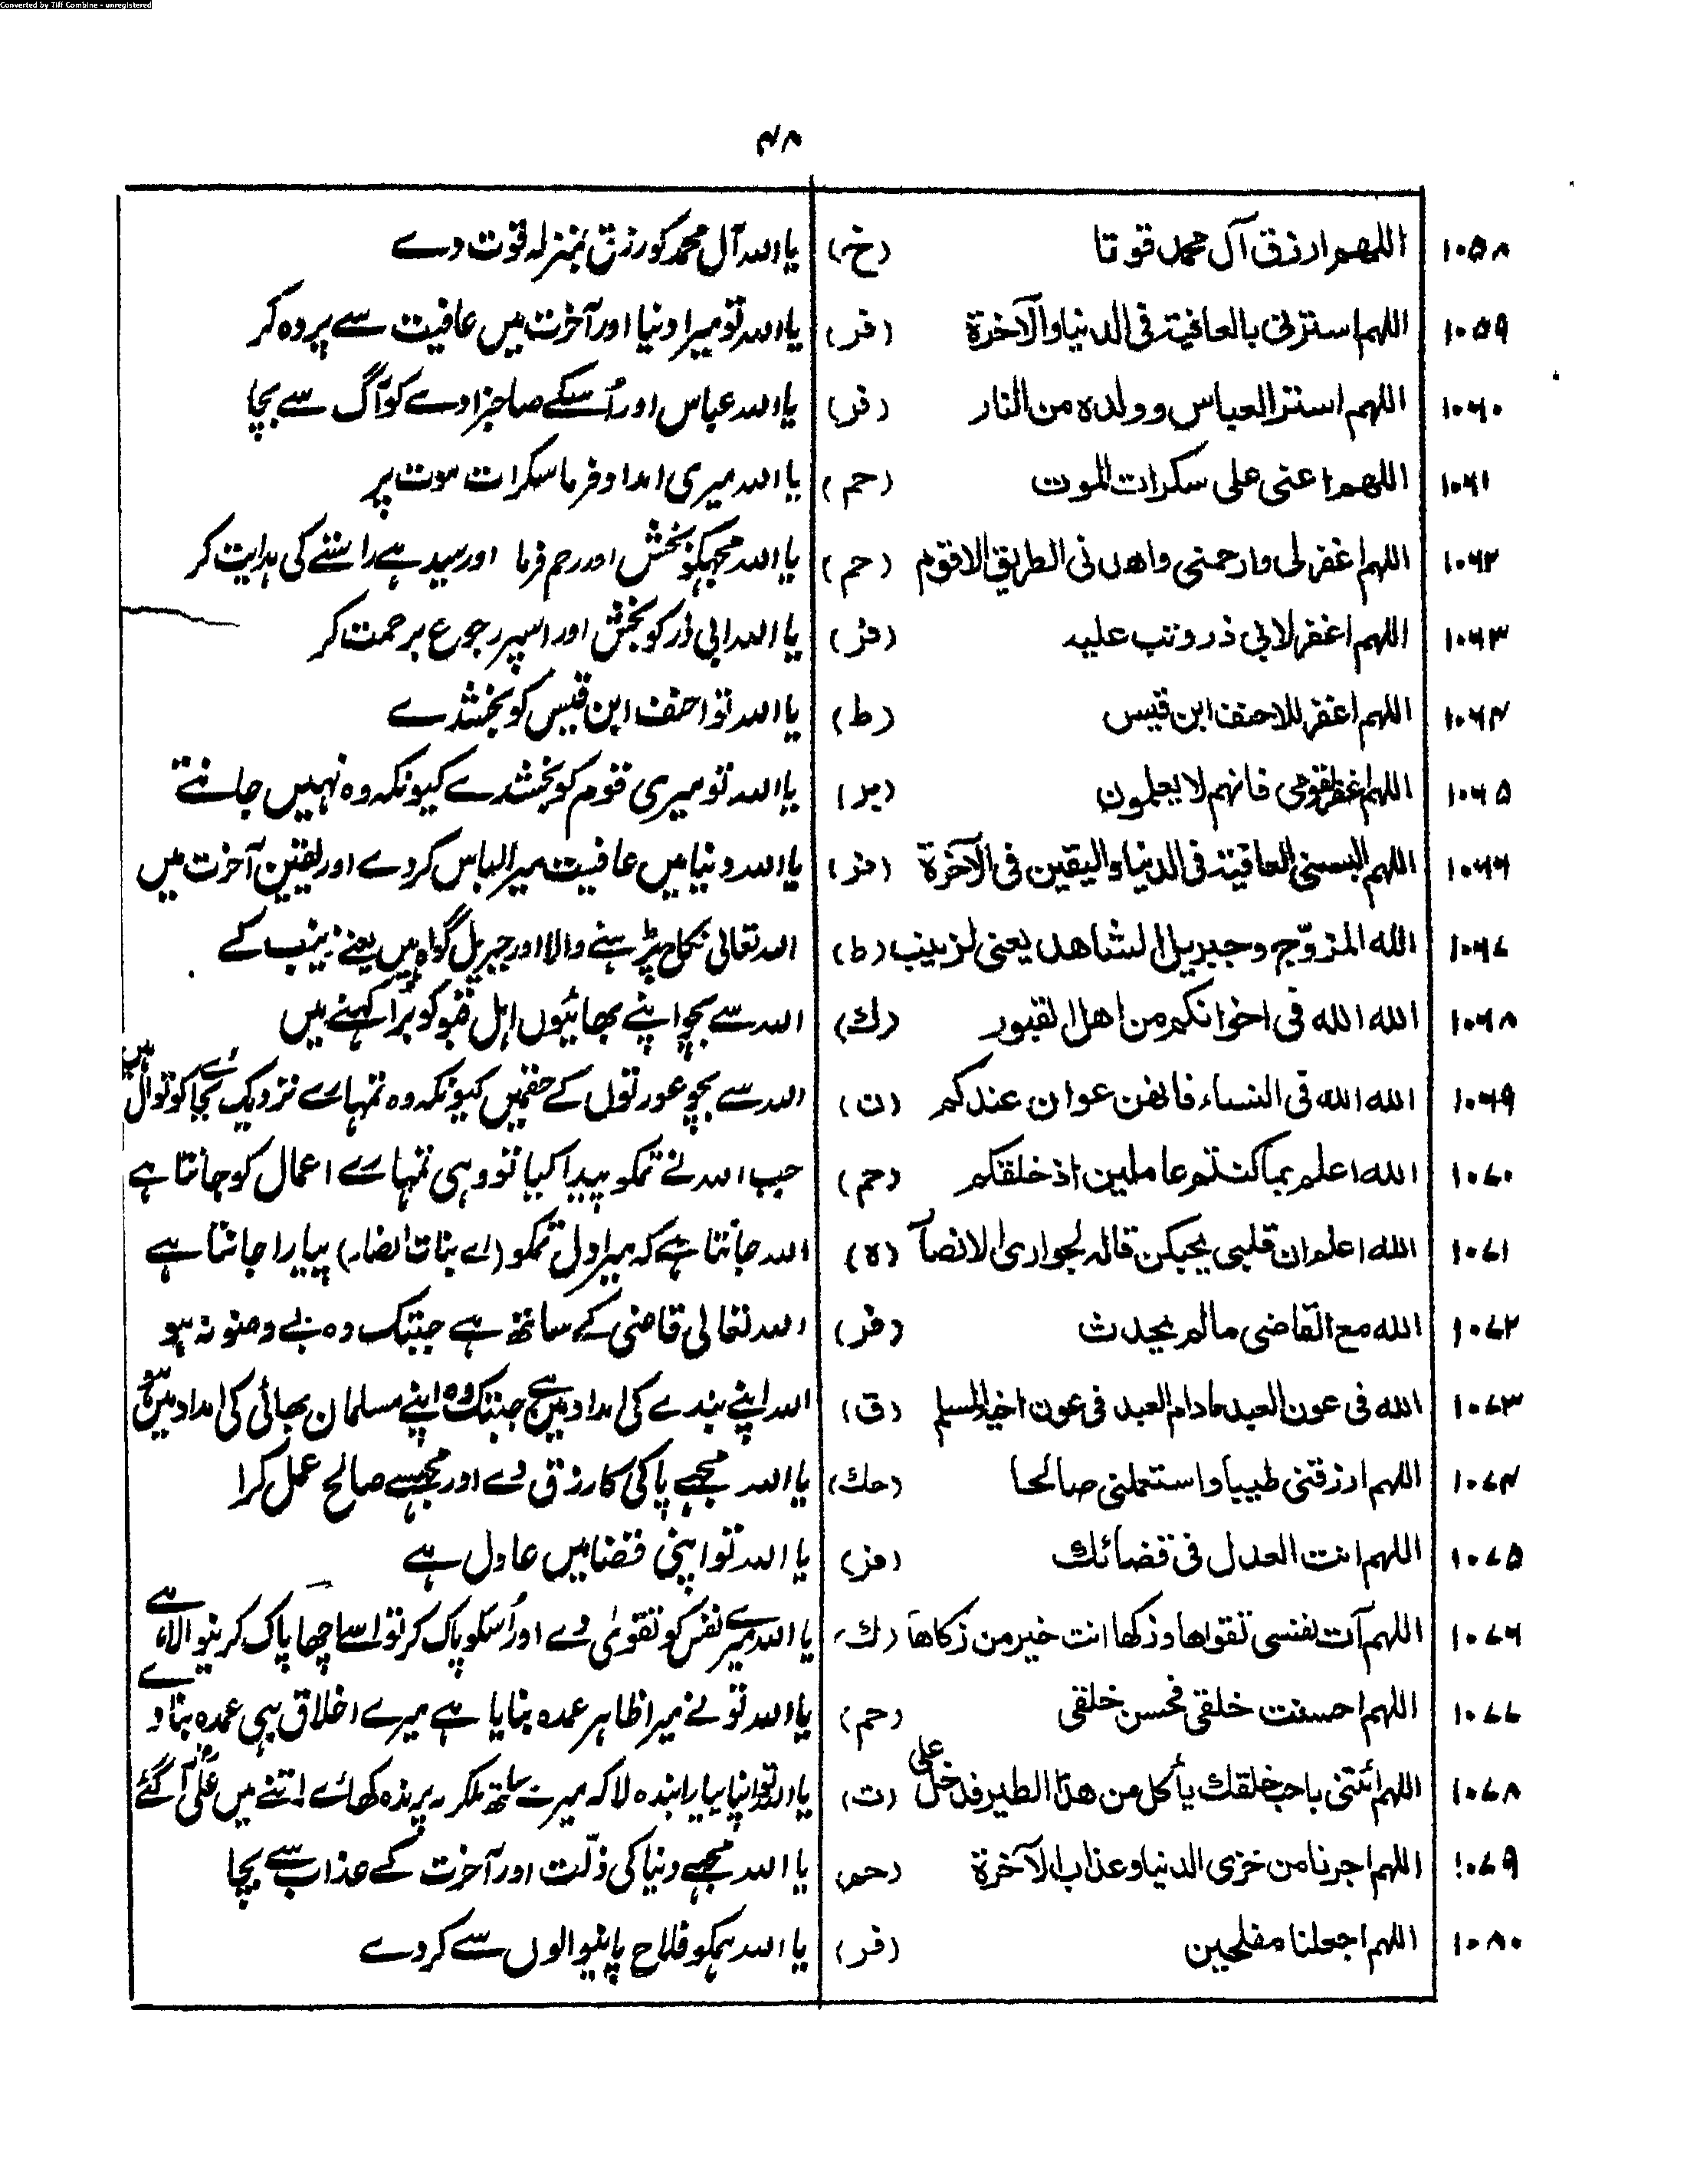 Converted by Tiff Combine - unregistered
۴۸
۱۰۵۸ اللهم ارزق آل محمد قوتا (خ) یا اللہ آل محمد کو رزق بمنزلہ قوت دے
۱۰۵۹ اللهم استرنی بالعافیة فی الدنیا والآخرة (فر) یا اللہ تو میرا دنیا اور آخرت میں عافیت سے پردہ کر
۱۰۶۰ اللهم استر العباس وولده من النار (فر) یا اللہ عباس اور اُسکے صاحبزادے کو آگ سے بچا
۱۰۶۱ اللهم اعنی علی سکرات الموت (حم) یا اللہ میری امداد فرما سکرات موت پر
۱۰۶۲ اللهم اغفر لی وارحمنی واهدنی الطریق الاقوم (حم) یا اللہ مجھکو بخش اور رحم فرما اور سیدہے راستے کی ہدایت کر
۱۰۶۳ اللهم اغفر لابی ذر وتب علیه (فر) یا اللہ ابی ذر کو بخش اور اسپر رجوع برحمت کر
۱۰۶۴ اللهم اغفر للاحنف ابن قیس (ط) یا اللہ تو احنف ابن قیس کو بخشدے
۱۰۶۵ اللهم اغفر لقومی فانهم لا یعلمون (بر) یا اللہ تو میری قوم کو بخشدے کیونکہ وہ نہیں جانتے
۱۰۶۶ اللهم البسنی العافیة فی الدنیا والیقین فی الآخرة (فر) یا اللہ دنیا میں عافیت میرا لباس کردے اور یقین آخرت میں
۱۰۶۷ الله المزوّج وجبریل الشاهد یعنی لزینب (ط) اللہ تعالی نکاح پڑہنے والا اور جبریل گواہ ہیں یعنے زینب کے
۱۰۶۸ الله الله فی اخوانکم من اهل القبور (ك) اللہ سے بچو اپنے بھائیوں اہل قبو کو بُرا کہنے میں
۱۰۶۹ الله الله فی النساء فانهن عوان عندکم (ن) اللہ سے بچو عورتوں کے حقمیں کیونکہ وہ تمہارے نزدیک
۱۰۷۰ الله اعلم بما کنتم عاملین اذ خلقکم (حم) جب اللہ نے تمکو پیدا کیا تو وہی تمہارے اعمال کو جانتا ہے
۱۰۷۱ الله اعلم ان قلبی یحبکن قاله لجواری الانصار (ہ) اللہ جانتا ہے کہ میرا دل تمکو (اے بنات انصار) پیارا جانتا ہے
۱۰۷۲ الله مع القاضی ما لم یحدث (فر) اللہ تعالی قاضی کے ساتھ ہے جبتک وہ بے وضو نہ ہو
۱۰۷۳ الله فی عون العبد مادام العبد فی عون اخیه المسلم (ق) اللہ اپنے بندے کی امداد میں ہے جبتک وہ اپنے مسلمان بھائی کی امداد میں ہو
۱۰۷۴ اللهم ارزقنی طیبا واستعملنی صالحا (حك) یا اللہ مجہے پاکی کا رزق دے اور مجہسے صالح عمل کرا
۱۰۷۵ اللهم انت العدل فی قضائك (فر) یا اللہ تو اپنی قضا میں عادل ہے
۱۰۷۶ اللهم آت نفسی تقواها وزکها انت خیر من زکاها (ك) یا اللہ میرے نفس کو تقویٰ دے اور اُسکو پاک کر تو اسا چھا پاک کرنیوالا ہے
۱۰۷۷ اللهم احسنت خلقی فحسن خلقی (حم) یا اللہ تو نے میرا ظاہر عمدہ بنایا ہے میرے اخلاق بہی عمدہ بنا دے
۱۰۷۸ اللهم ائتنی باحب خلقك یأکل من هذا الطیر فدخل علی (ت) یا اللہ تو اپنا پیارا بندہ لا کہ میرے ساتھ ملکر یہ پرندہ کھائے اتنے میں علی آ گئے
۱۰۷۹ اللهم اجرنا من خزی الدنیا وعذاب الآخرة (حم) یا اللہ مجہے دنیا کی ذلّت اور آخرت کے عذاب سے بچا
۱۰۸۰ اللهم اجعلنا مفلحین (فر) یا اللہ ہمکو فلاح پانیوالوں سے کردے